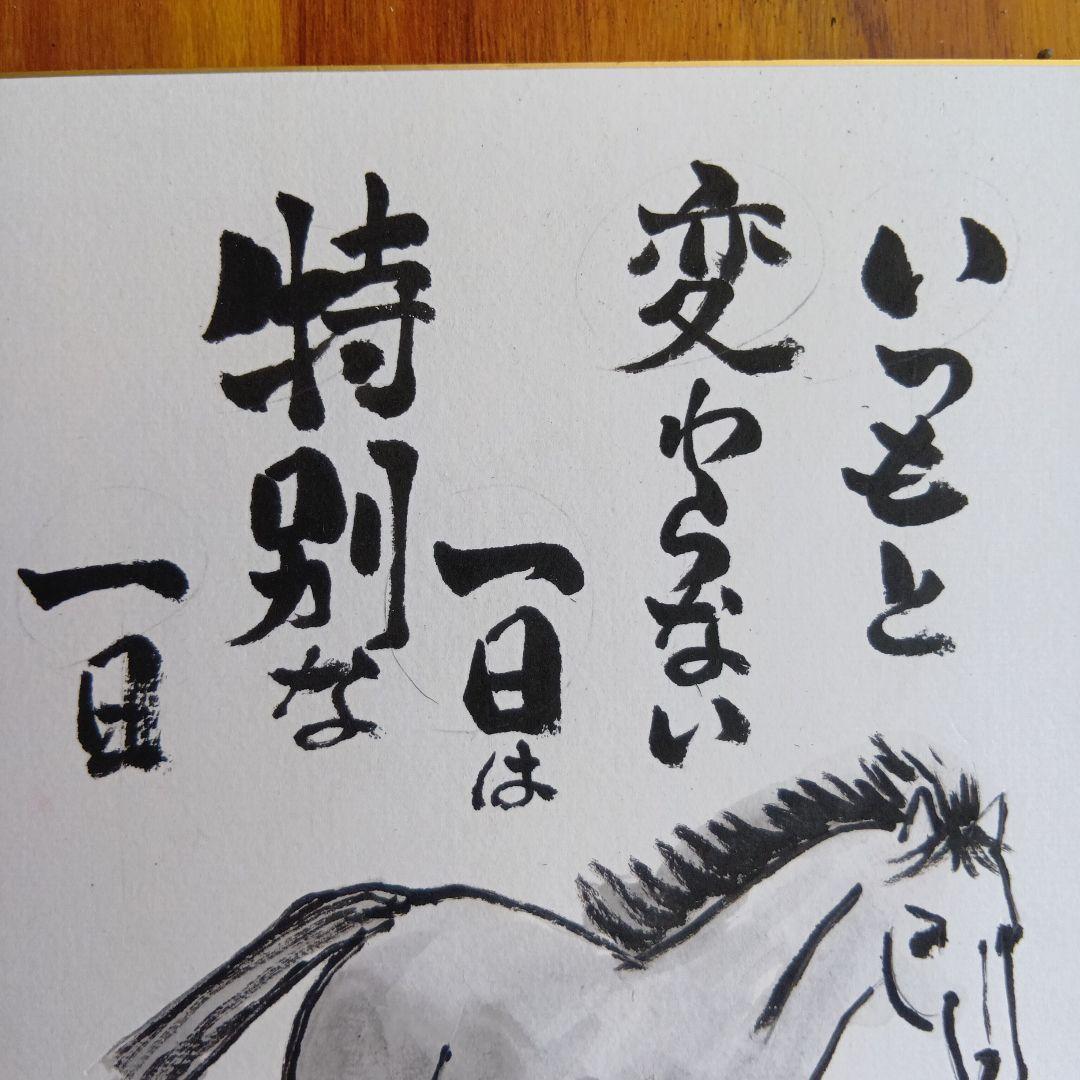 いつもと
変わらない
一日は
特別な
一日